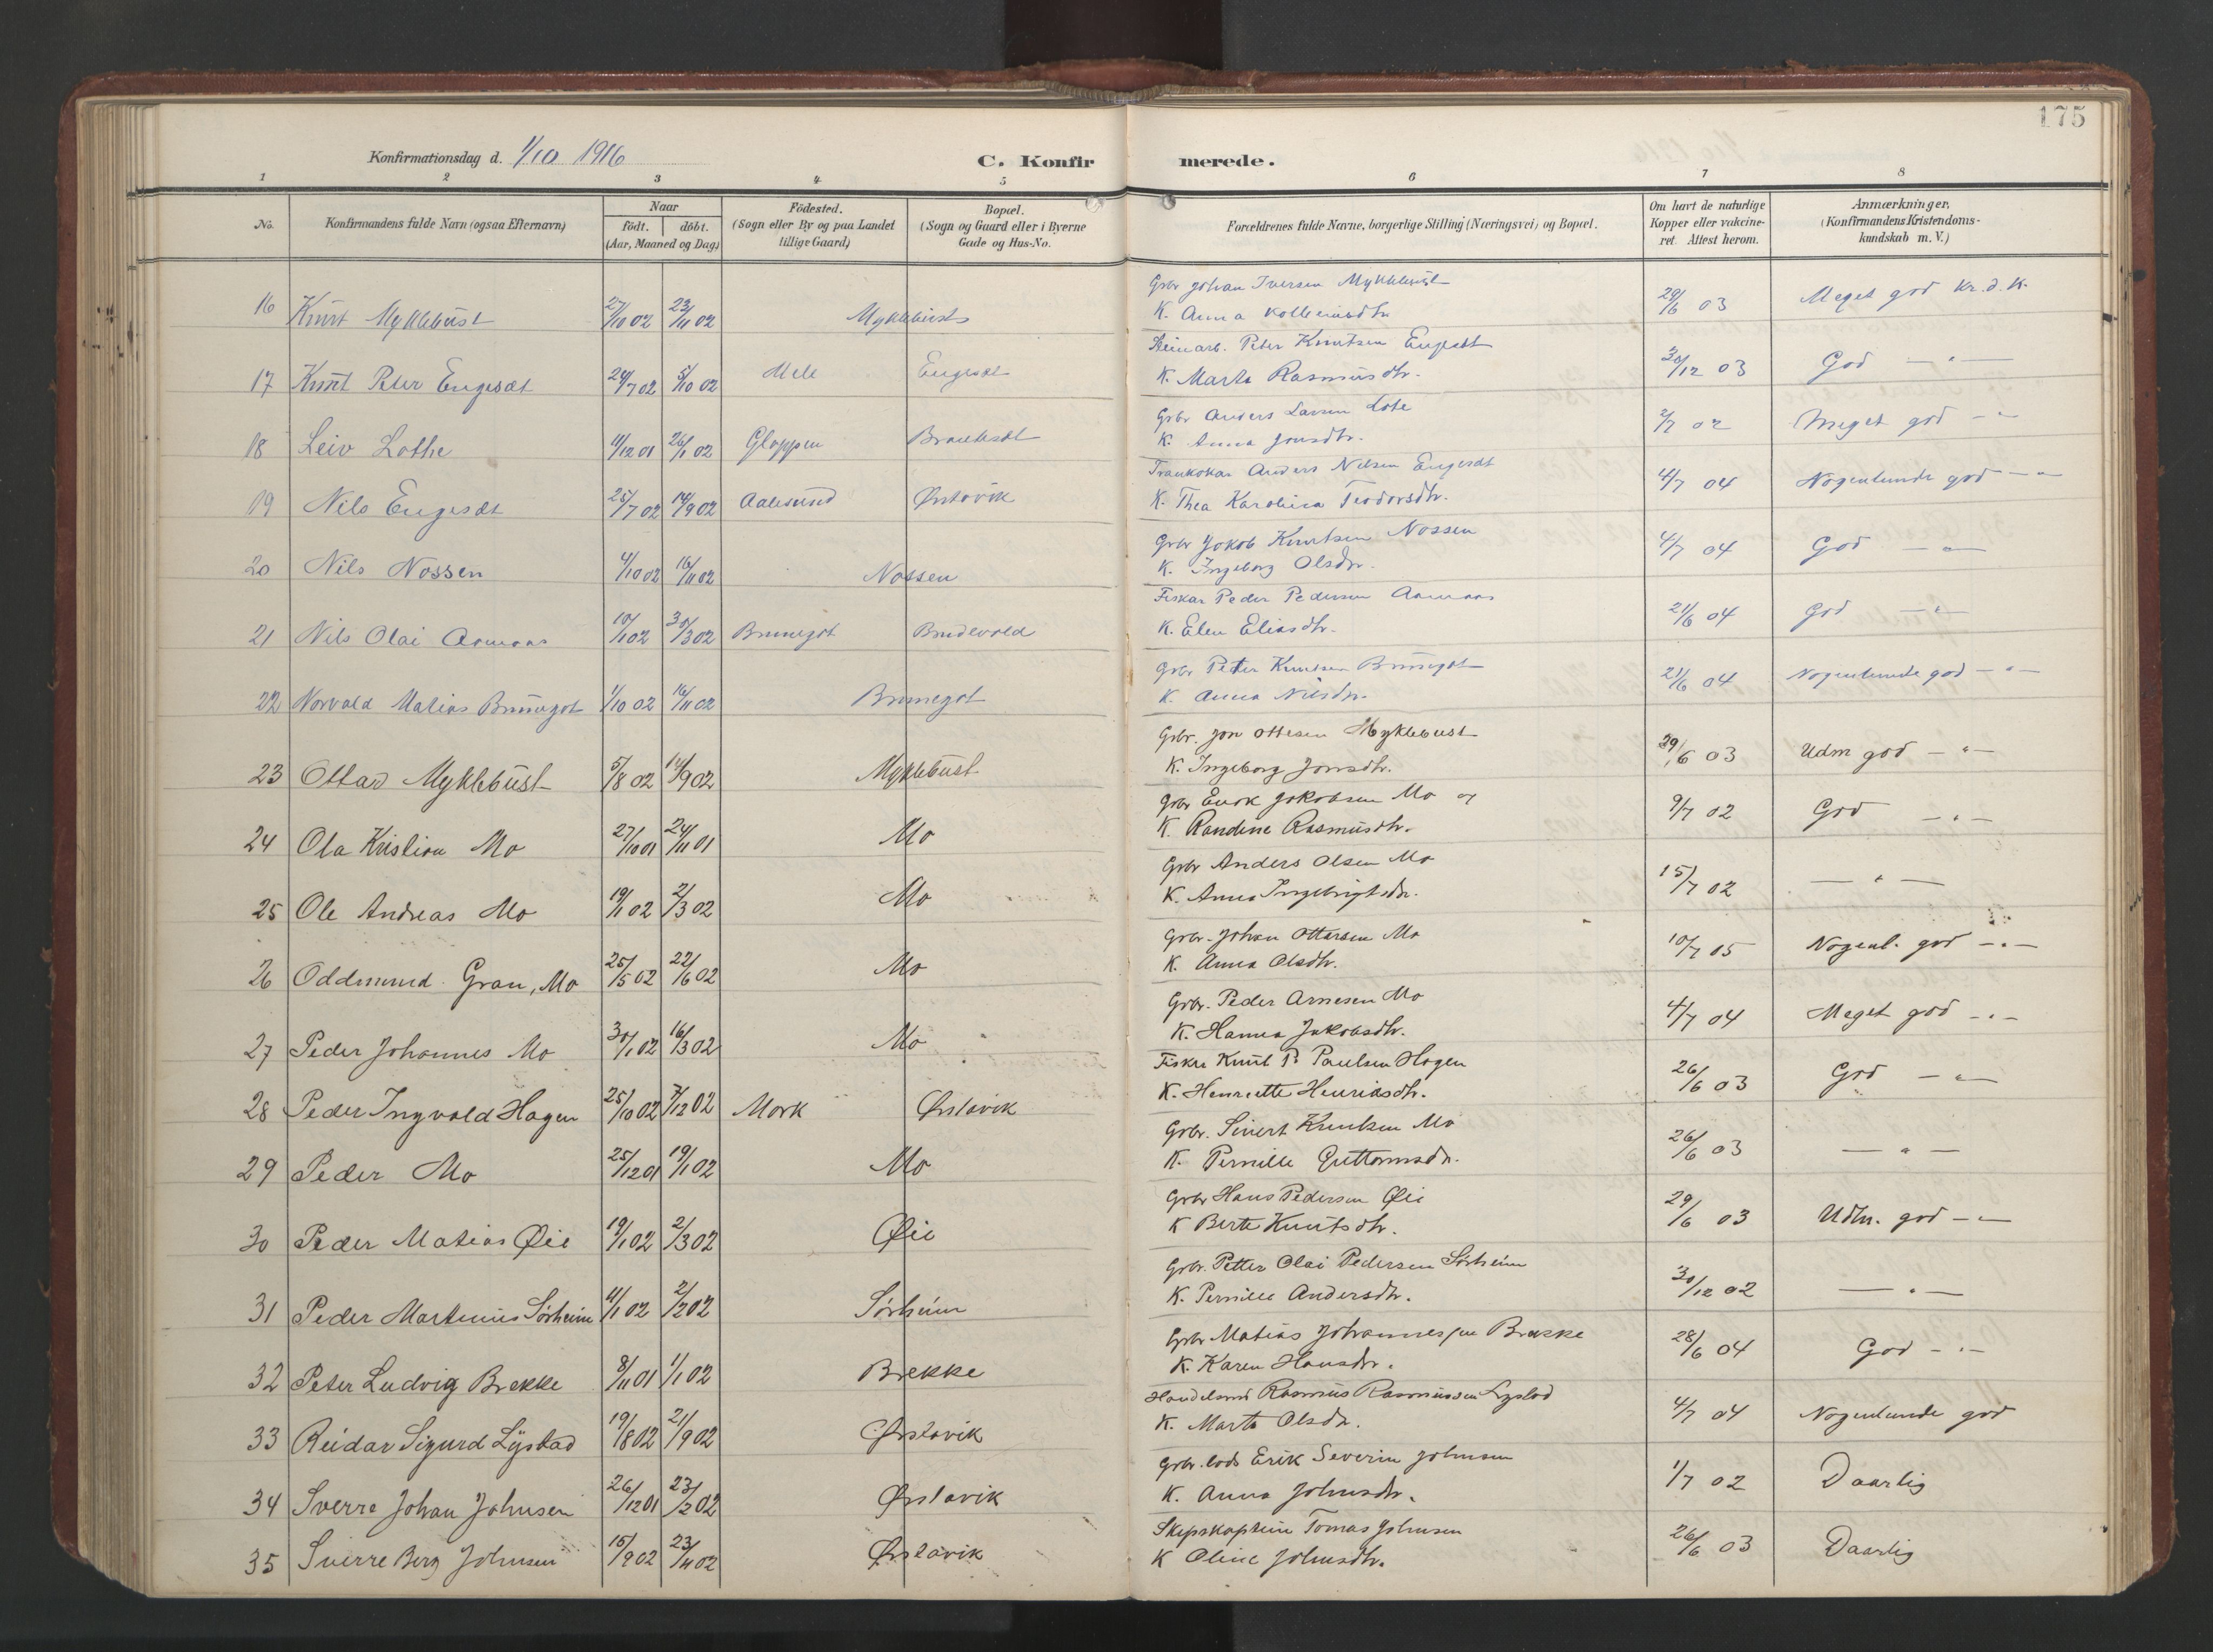 175
Konfirmationsdag d. 1/10 1916
C. Konfirmerede.
1 2 3 4 5 6 7 8
No. Konfirmandens fulde Navn (ogsaa Efternavn) Naar födt. döbt. (Aar, Maaned og Dag) Födested. (Sogn eller By og paa Landet tillige Gaard) Bopæl. (Sogn og Gaard eller i Byerne Gade og Hus-No. Forældrenes fulde Navne, borgerlige Stilling (Næringsvei) og Bopæl. Om havt de naturlige Kopper eller vakcineret. Attest herom. Anmærkninger. (Konfirmandens Kristendomskundskab m. V.)
16 Knut Myklebust 27/10 02 23/11 02 Myklebust Grbr Johan Iversen Myklebust
K. Anna 29/6 03 Meget god kr.d.K.
17 Knut Peter Engeset 24/7 02 5/10 02 Mele Engeset Steinarb. Peter Knutsen Engeset
K. Marta Rasmusdtr. 30/12 03 God — " —
18 Leiv Lothe 11/12 01 26/1 02 Gloppen Grbr Anders Larsen Lote
K. Anna Jonsdtr. 2/7 02 Meget god — "
19 Nils Engeset 25/7 02 14/9 02 Aalesund Ørstavik Trankokar Anders Nilsen Engeset
K. Thea Karolina Teodorsdtr. 4/7 04 Nogenlunde god — "
20 Nils Nossen 4/10 02 16/11 02 Nossen Grbr Jakob Knutsen Nossen
K. Ingeborg Olsdtr. 4/7 04 God — " —
21 Nils Olai Aamaas 10/1 02 30/3 02 Brunegot Brudevold Fiskar Peder Pedersen Aamaas
K. Elen Eliasdtr. 21/6 04 God — " —
22 Norvald Matias Brunegot 1/10 02 16/11 02 Brunegot Grbr Peter Knutsen Brunegot
K. Anna Nilsdtr. 21/6 04 Nogenlunde god — " —
23 Ottar Myklebust 5/8 02 14/9 02 Myklebust Grbr. Jon Ottesen Myklebust
K. Ingeborg Jonsdtr. 29/6 03 Udm god — " —
24 Ola Kristian Mo 27/10 01 24/11 01 Mo Grbr Enok Jakobsen Mo og
K. Randine Rasmusdtr. 9/7 02 God — " —
25 Ole Andreas Mo 19/1 02 2/3 02 Mo Grbr Anders Olsen Mo
K. Anna Ingebrigtsdtr. 15/7 02 — " —
26 Oddmund Gran, Mo 25/5 02 22/6 02 Mo Grbr. Johan Ottersen Mo
K. Anna Olsdtr. 10/7 05 Nogenl. god — " —
27 Peder Johannes Mo 30/1 02 16/3 02 Mo Grbr. Peder Arnesen Mo
K. Hanna Jakobsdtr. 4/7 04 Meget god — " —
28 Peder Ingvald Hagen 25/10 02 7/12 02 Mork Ørstavik Fiskar Knut P. Paulsen Hagen
K. Henriette Henriksdtr. 26/6 03 God — " —
29 Peder Mo 25/12 01 19/1 02 Mo Grbr. Sivert Knutsen Mo
K. Pernille Guttormsdtr. 26/6 03 — " —
30 Peder Matias Øie 19/1 02 2/3 02 Øie Grbr Hans Pedersen Øie
K Berte Knutsdtr. 29/6 03 Udm. god — " —
31 Peder Martinus Sørheim 11/1 02 2/2 02 Sørheim Grbr. Petter Olai Pedersen Sørheim
K. Pernille Andersdtr. 30/12 02 — " —
32 Peter Ludvig Brekke 8/11 01 1/1 02 Brekke Grbr Matias Johannessen Brekke
K. Karen Hansdtr. 28/6 04 God — " —
33 Reidar Sigurd Lystad 19/8 02 21/9 02 Ørstavik Handelsm Rasmus Rasmussen Lystad
K. Marta Olsdtr. 4/7 04 Nogenlunde god
34 Sverre Johan Johnsen 26/12 01 23/2 02 Ørstavik Grbr. lods Erik Severin Johnsen
K. Anna Johnsdtr. 1/7 02 Daarlig
35 Sverre Berg Johnsen 15/9 02 23/11 02 Ørstavik Skipskaptein Tomas Johnsen
K Oline Johnsdtr. 26/6 03 Daarlig